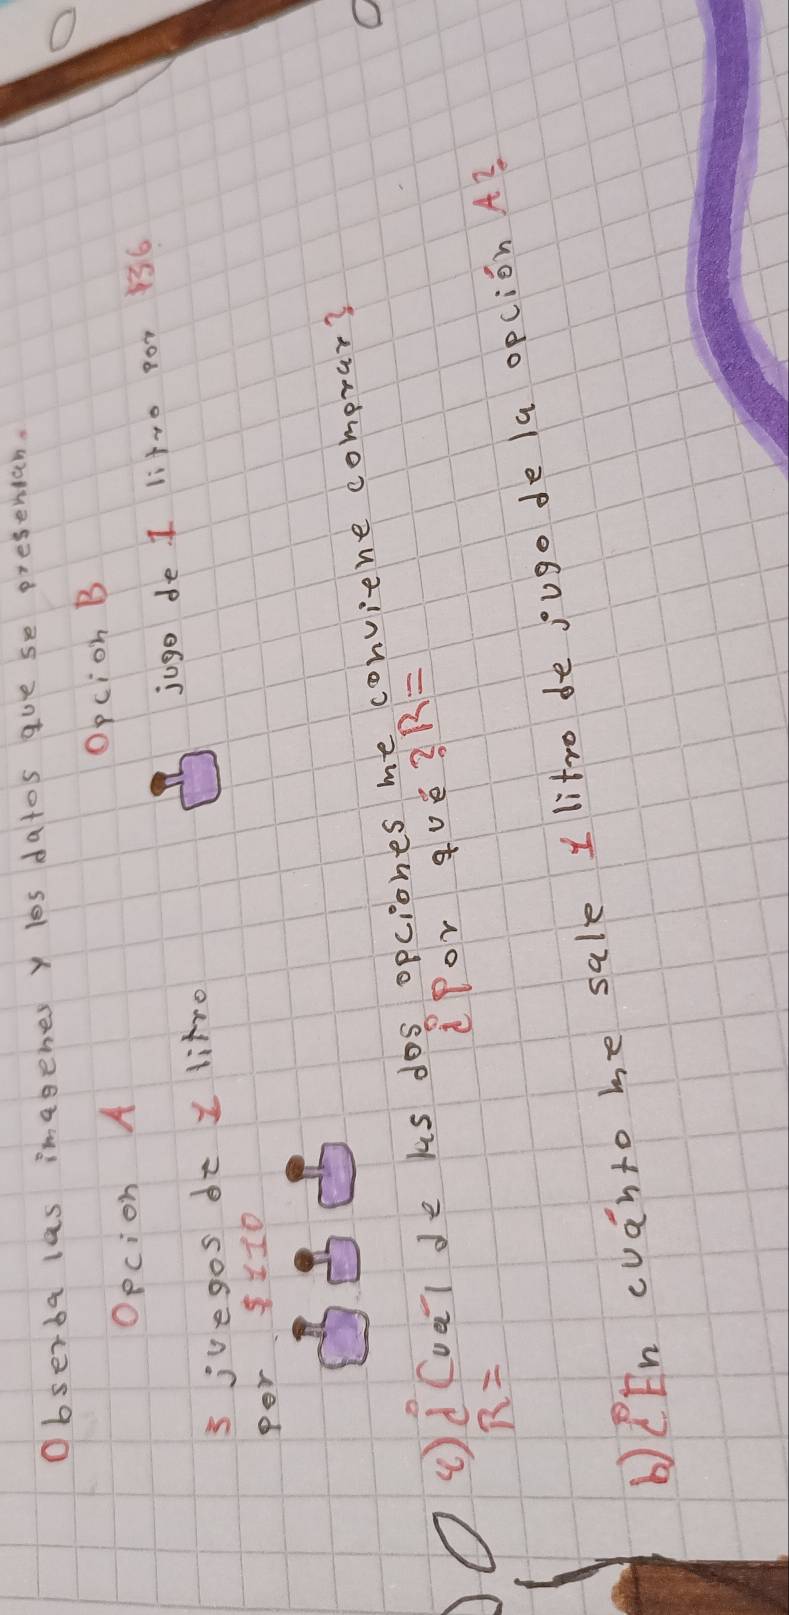 Obserba las imagenes y los datos que se presentan.
Opcion A
Opcion B
3 juegos de 1 litro
por $110
jugo de 1 litro por $36
a) ¿Cuál de las dos opciones me conviene comprar?
R= ¿Por qué? R=
b) ¿En cuánto me sale 1 litro de jugo de la opción A?